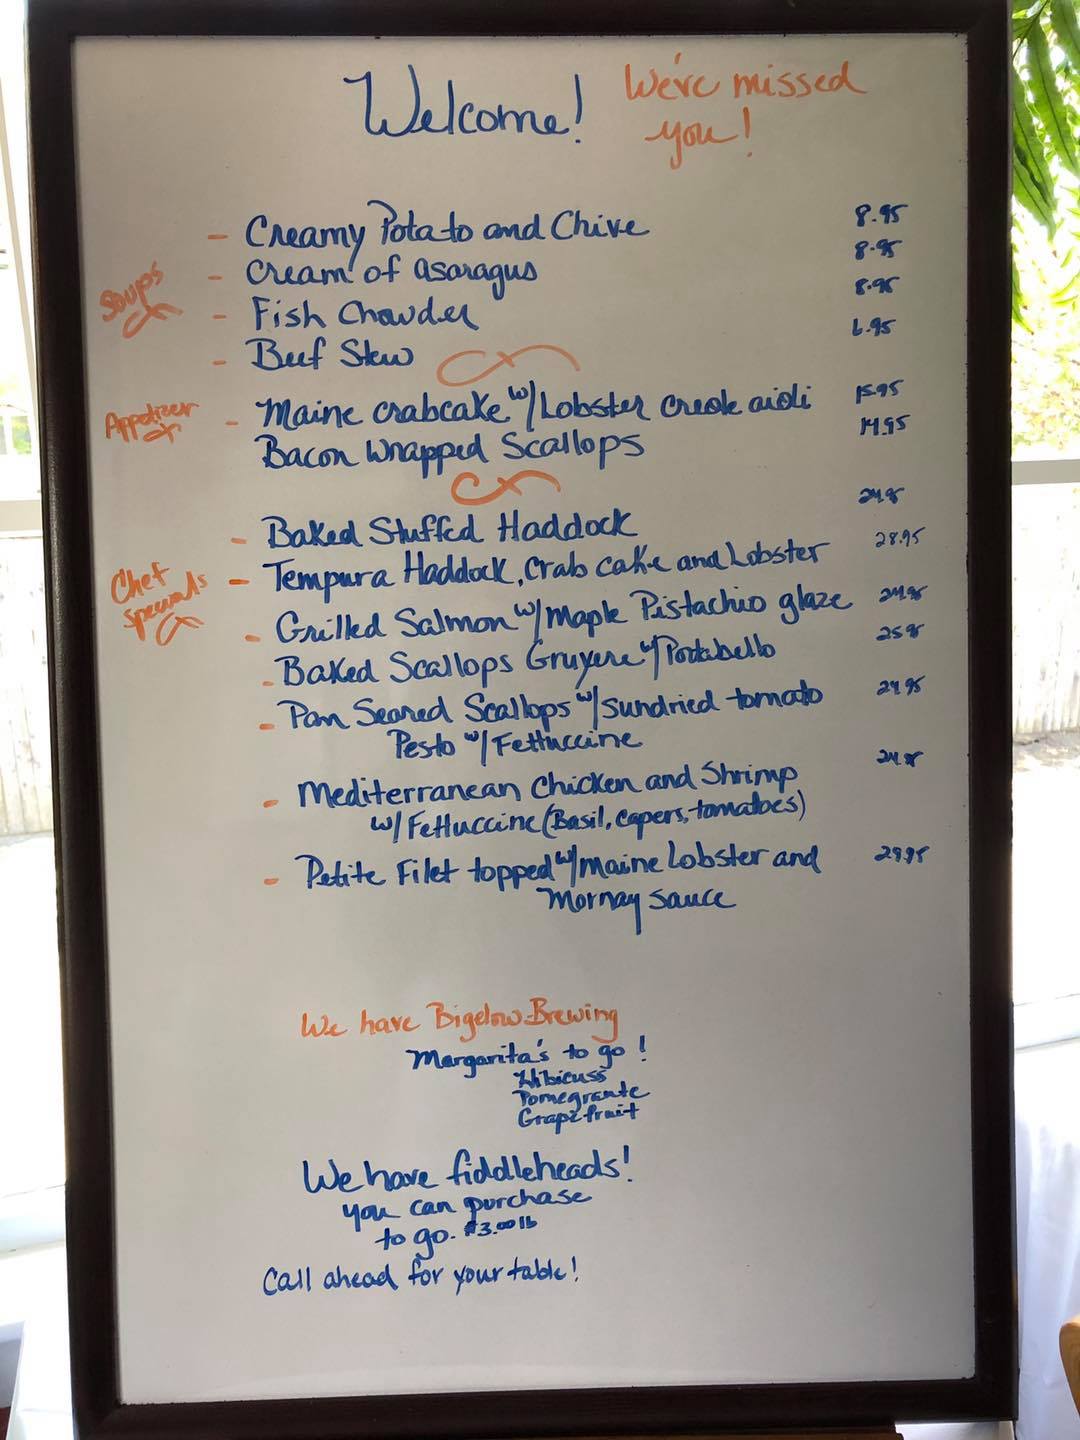 Welcome! We've missed
you!
- Creamy Potato and Chive 8.95
Soups - Cream of Asaragus 8.95
- Fish Chowder 8.95
- Beef Stew 6.95
Appetizer - Maine crabcake w/Lobster creole aioli 15.95
Bacon Wrapped Scallops 14.95
- Baked Stuffed Haddock 24.95
Chef specials - Tempura Haddock, Crab cake and Lobster 28.95
- Grilled Salmon w/Maple Pistachio glaze 24.95
- Baked Scallops Gruyere w/Portabello 25.95
- Pan Seared Scallops w/sundried tomato 24.95
Pesto w/Fettuccine
- Mediterranean Chicken and Shrimp 24.95
w/Fettuccine (Basil, capers, tomatoes)
- Petite Filet topped w/maine Lobster and 29.95
Mornay Sauce
We have Bigelow Brewing
Margarita's to go!
Hibicuss
Pomegrante
Grapefruit
We have fiddleheads!
you can purchase
to go. $3.00 lb
Call ahead for your table!